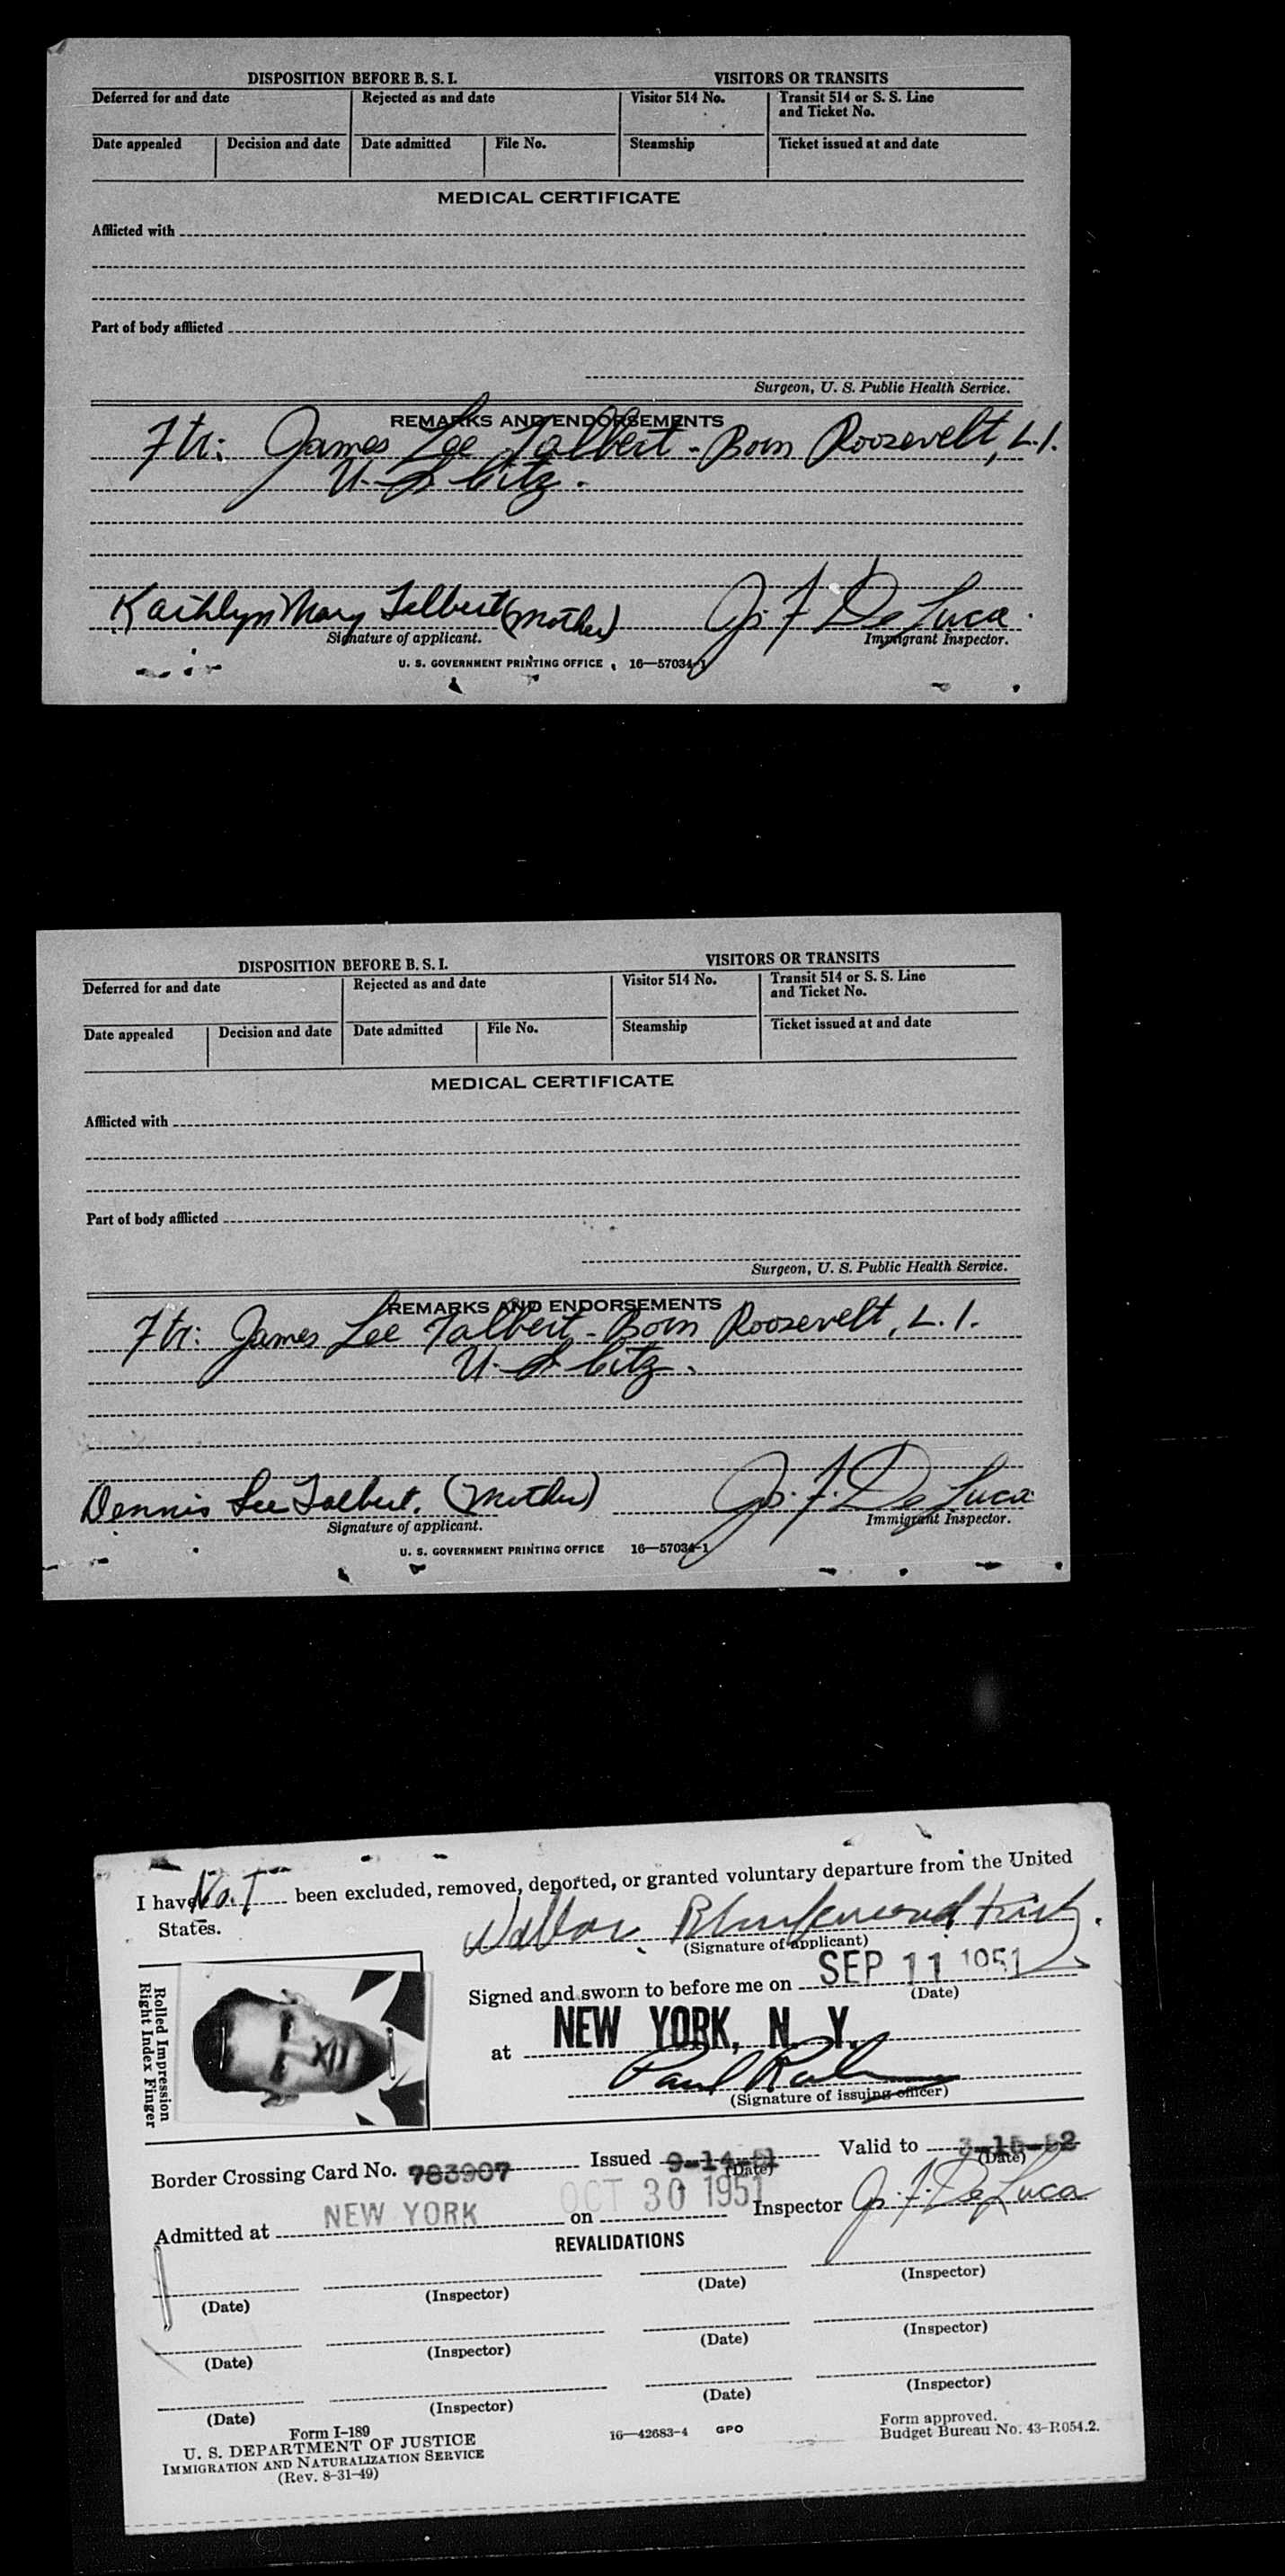 DISPOSITION BEFORE B. S. I. VISITORS OR TRANSITS
Deferred for and date Rejected as and date Visitor 514 No. Transit 514 or S. S. Line
and Ticket No.
Date appealed Decision and date Date admitted File No. Steamship Ticket issued at and date
MEDICAL CERTIFICATE
Afflicted with
Part of body afflicted
Surgeon, U. S. Public Health Service.
REMARKS AND ENDORSEMENTS
Ftr: James Lee Talbert - Born Roosevelt, L.I.
U. S. Citz.
Kaithlyn Mary Talbert (Mother) Js. F. De Luca
Signature of applicant. Immigrant Inspector.
U. S. GOVERNMENT PRINTING OFFICE 16—57034-1
DISPOSITION BEFORE B. S. I. VISITORS OR TRANSITS
Deferred for and date Rejected as and date Visitor 514 No. Transit 514 or S. S. Line
and Ticket No.
Date appealed Decision and date Date admitted File No. Steamship Ticket issued at and date
MEDICAL CERTIFICATE
Afflicted with
Part of body afflicted
Surgeon, U. S. Public Health Service.
REMARKS AND ENDORSEMENTS
Ftr: James Lee Talbert - Born Roosevelt, L.I.
U. S. Citz.
Dennis Lee Talbert. (Mother) Js. F. De Luca
Signature of applicant. Immigrant Inspector.
U. S. GOVERNMENT PRINTING OFFICE 16—57034-1
I have NoT been excluded, removed, deported, or granted voluntary departure from the United
States.
(Signature of applicant)
Signed and sworn to before me on SEP 11 1951
(Date)
at NEW YORK, N. Y.
Paul
(Signature of issuing officer)
Rolled Impression
Right Index Finger
Border Crossing Card No. 783907 Issued 9-14-51 Valid to 3-15-52
(Date) (Date)
Admitted at NEW YORK on OCT 30 1951 Inspector Js. F. De Luca
REVALIDATIONS
(Date) (Inspector) (Date) (Inspector)
(Date) (Inspector) (Date) (Inspector)
(Date) (Inspector) (Date) (Inspector)
Form I-189
U. S. DEPARTMENT OF JUSTICE
IMMIGRATION AND NATURALIZATION SERVICE
(Rev. 8-31-49)
16—42683-4 GPO
Form approved.
Budget Bureau No. 43-R054.2.